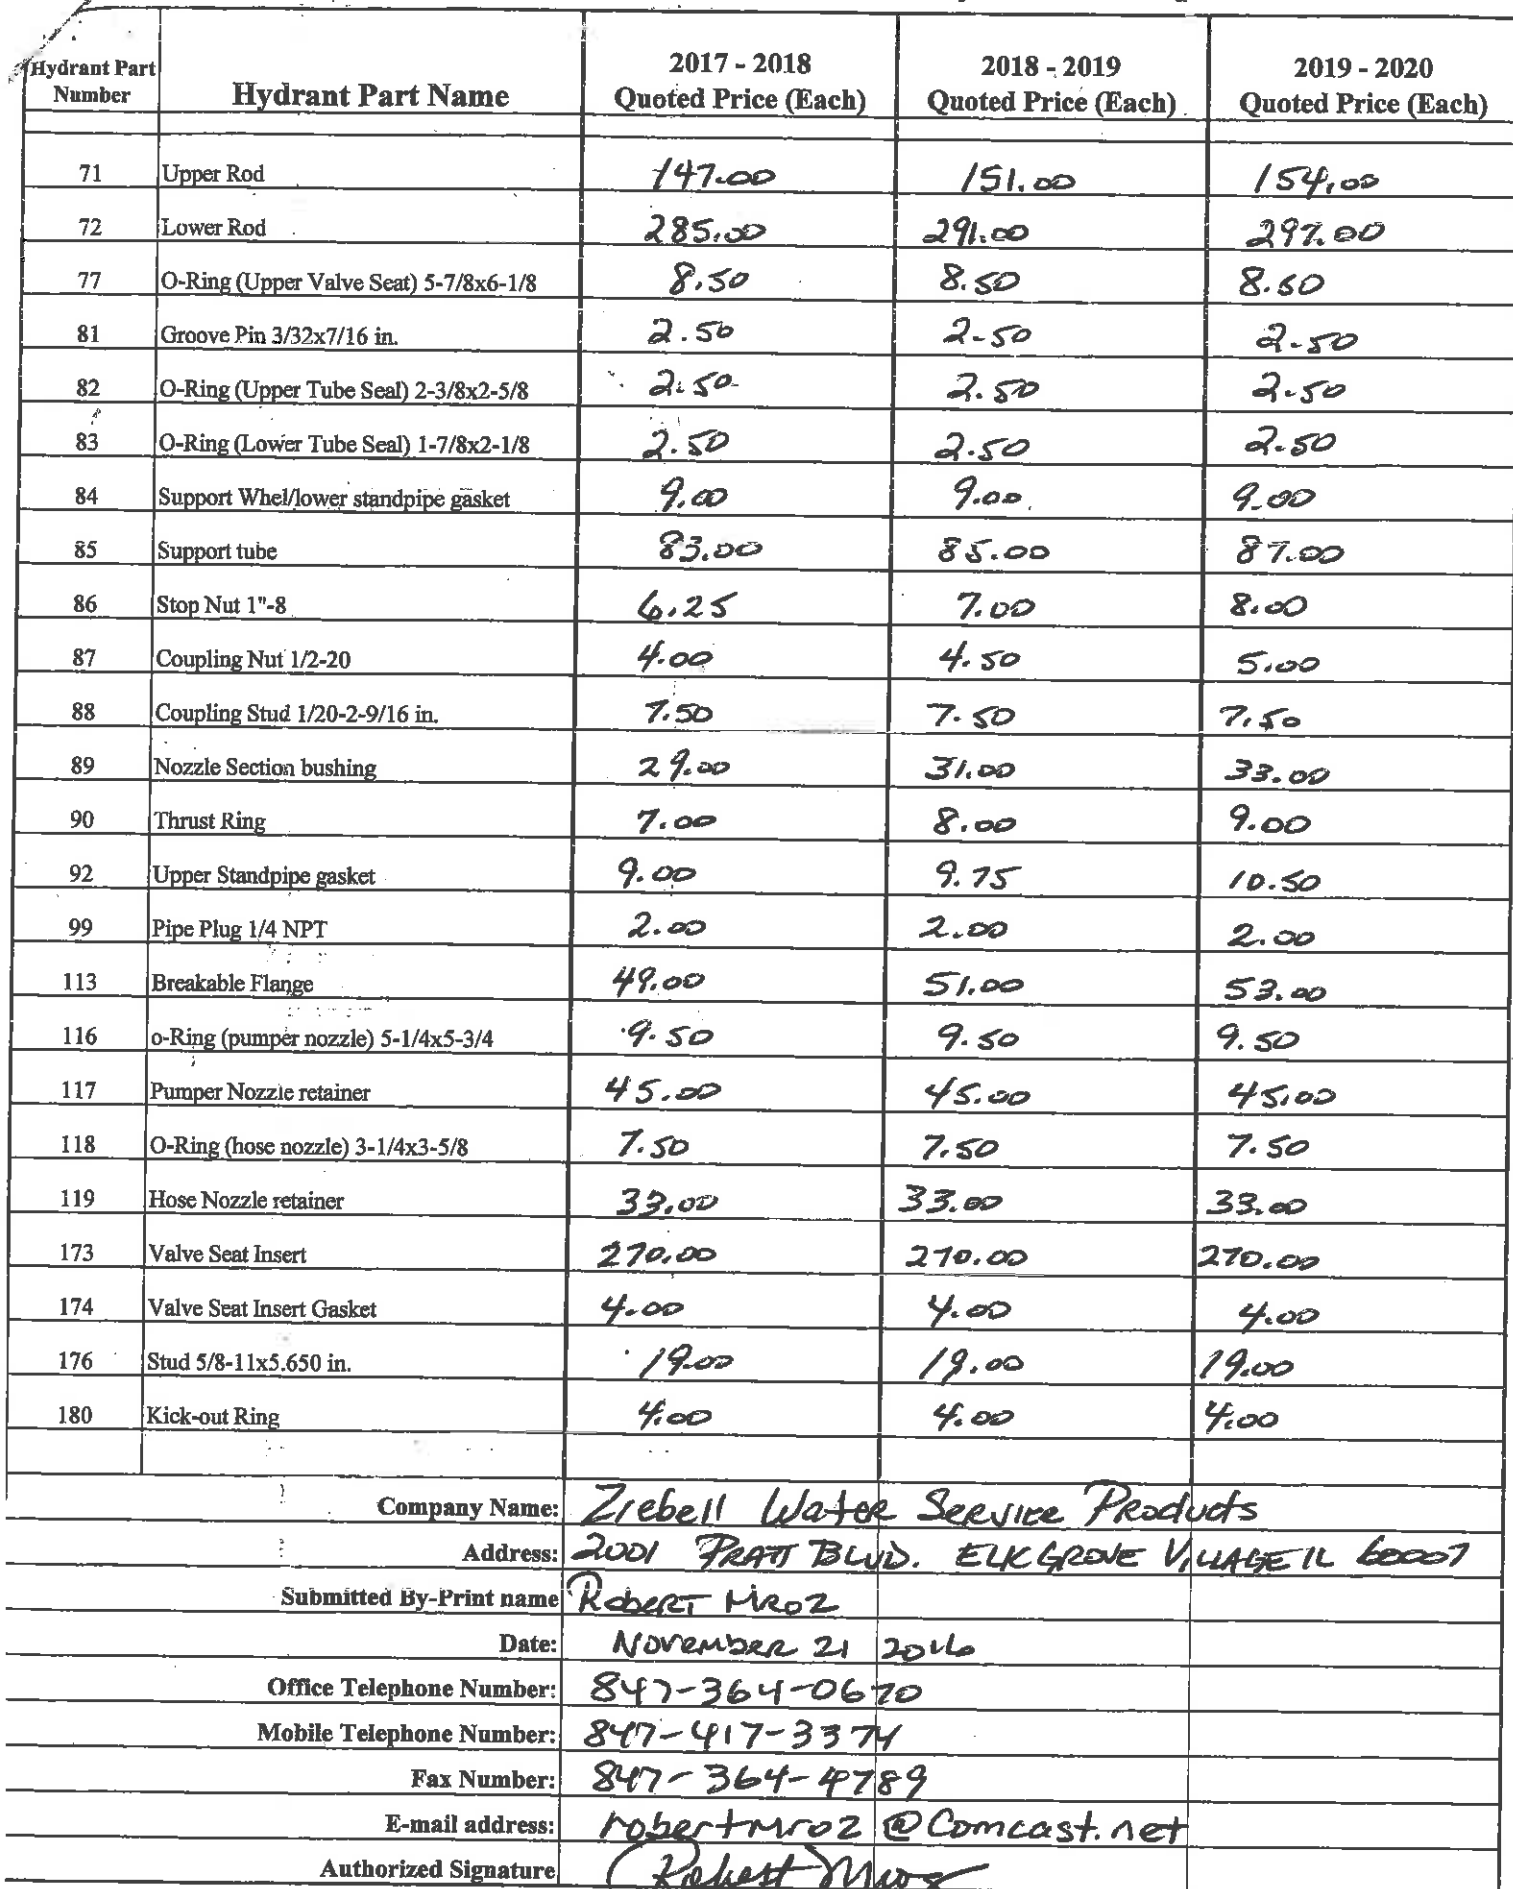 Hydrant Part Number Hydrant Part Name 2017 - 2018 Quoted Price (Each) 2018 - 2019 Quoted Price (Each) 2019 - 2020 Quoted Price (Each)
71 Upper Rod 147.00 151.00 154.00
72 Lower Rod 285.00 291.00 297.00
77 O-Ring (Upper Valve Seat) 5-7/8x6-1/8 8.50 8.50 8.50
81 Groove Pin 3/32x7/16 in. 2.50 2-50 2-50
82 O-Ring (Upper Tube Seal) 2-3/8x2-5/8 2.50 2.50 2.50
83 O-Ring (Lower Tube Seal) 1-7/8x2-1/8 2.50 2.50 2.50
84 Support Whel/lower standpipe gasket 9.00 9.00 9.00
85 Support tube 83.00 85.00 87.00
86 Stop Nut 1"-8 6.25 7.00 8.00
87 Coupling Nut 1/2-20 4.00 4.50 5.00
88 Coupling Stud 1/20-2-9/16 in. 7.50 7.50 7.50
89 Nozzle Section bushing 29.00 31.00 33.00
90 Thrust Ring 7.00 8.00 9.00
92 Upper Standpipe gasket 9.00 9.75 10.50
99 Pipe Plug 1/4 NPT 2.00 2.00 2.00
113 Breakable Flange 49.00 51.00 53.00
116 o-Ring (pumper nozzle) 5-1/4x5-3/4 9.50 9.50 9.50
117 Pumper Nozzle retainer 45.00 45.00 45.00
118 O-Ring (hose nozzle) 3-1/4x3-5/8 7.50 7.50 7.50
119 Hose Nozzle retainer 33.00 33.00 33.00
173 Valve Seat Insert 270.00 270.00 270.00
174 Valve Seat Insert Gasket 4.00 4.00 4.00
176 Stud 5/8-11x5.650 in. 19.00 19.00 19.00
180 Kick-out Ring 4.00 4.00 4.00
Company Name: Ziebell Water Service Products
Address: 2001 PRATT BLVD. ELK GROVE VILLAGE IL 60007
Submitted By-Print name Robert Mroz
Date: November 21 2016
Office Telephone Number: 847-364-0670
Mobile Telephone Number: 847-417-3374
Fax Number: 847-364-4789
E-mail address: robertmroz@Comcast.net
Authorized Signature Robert Mroz